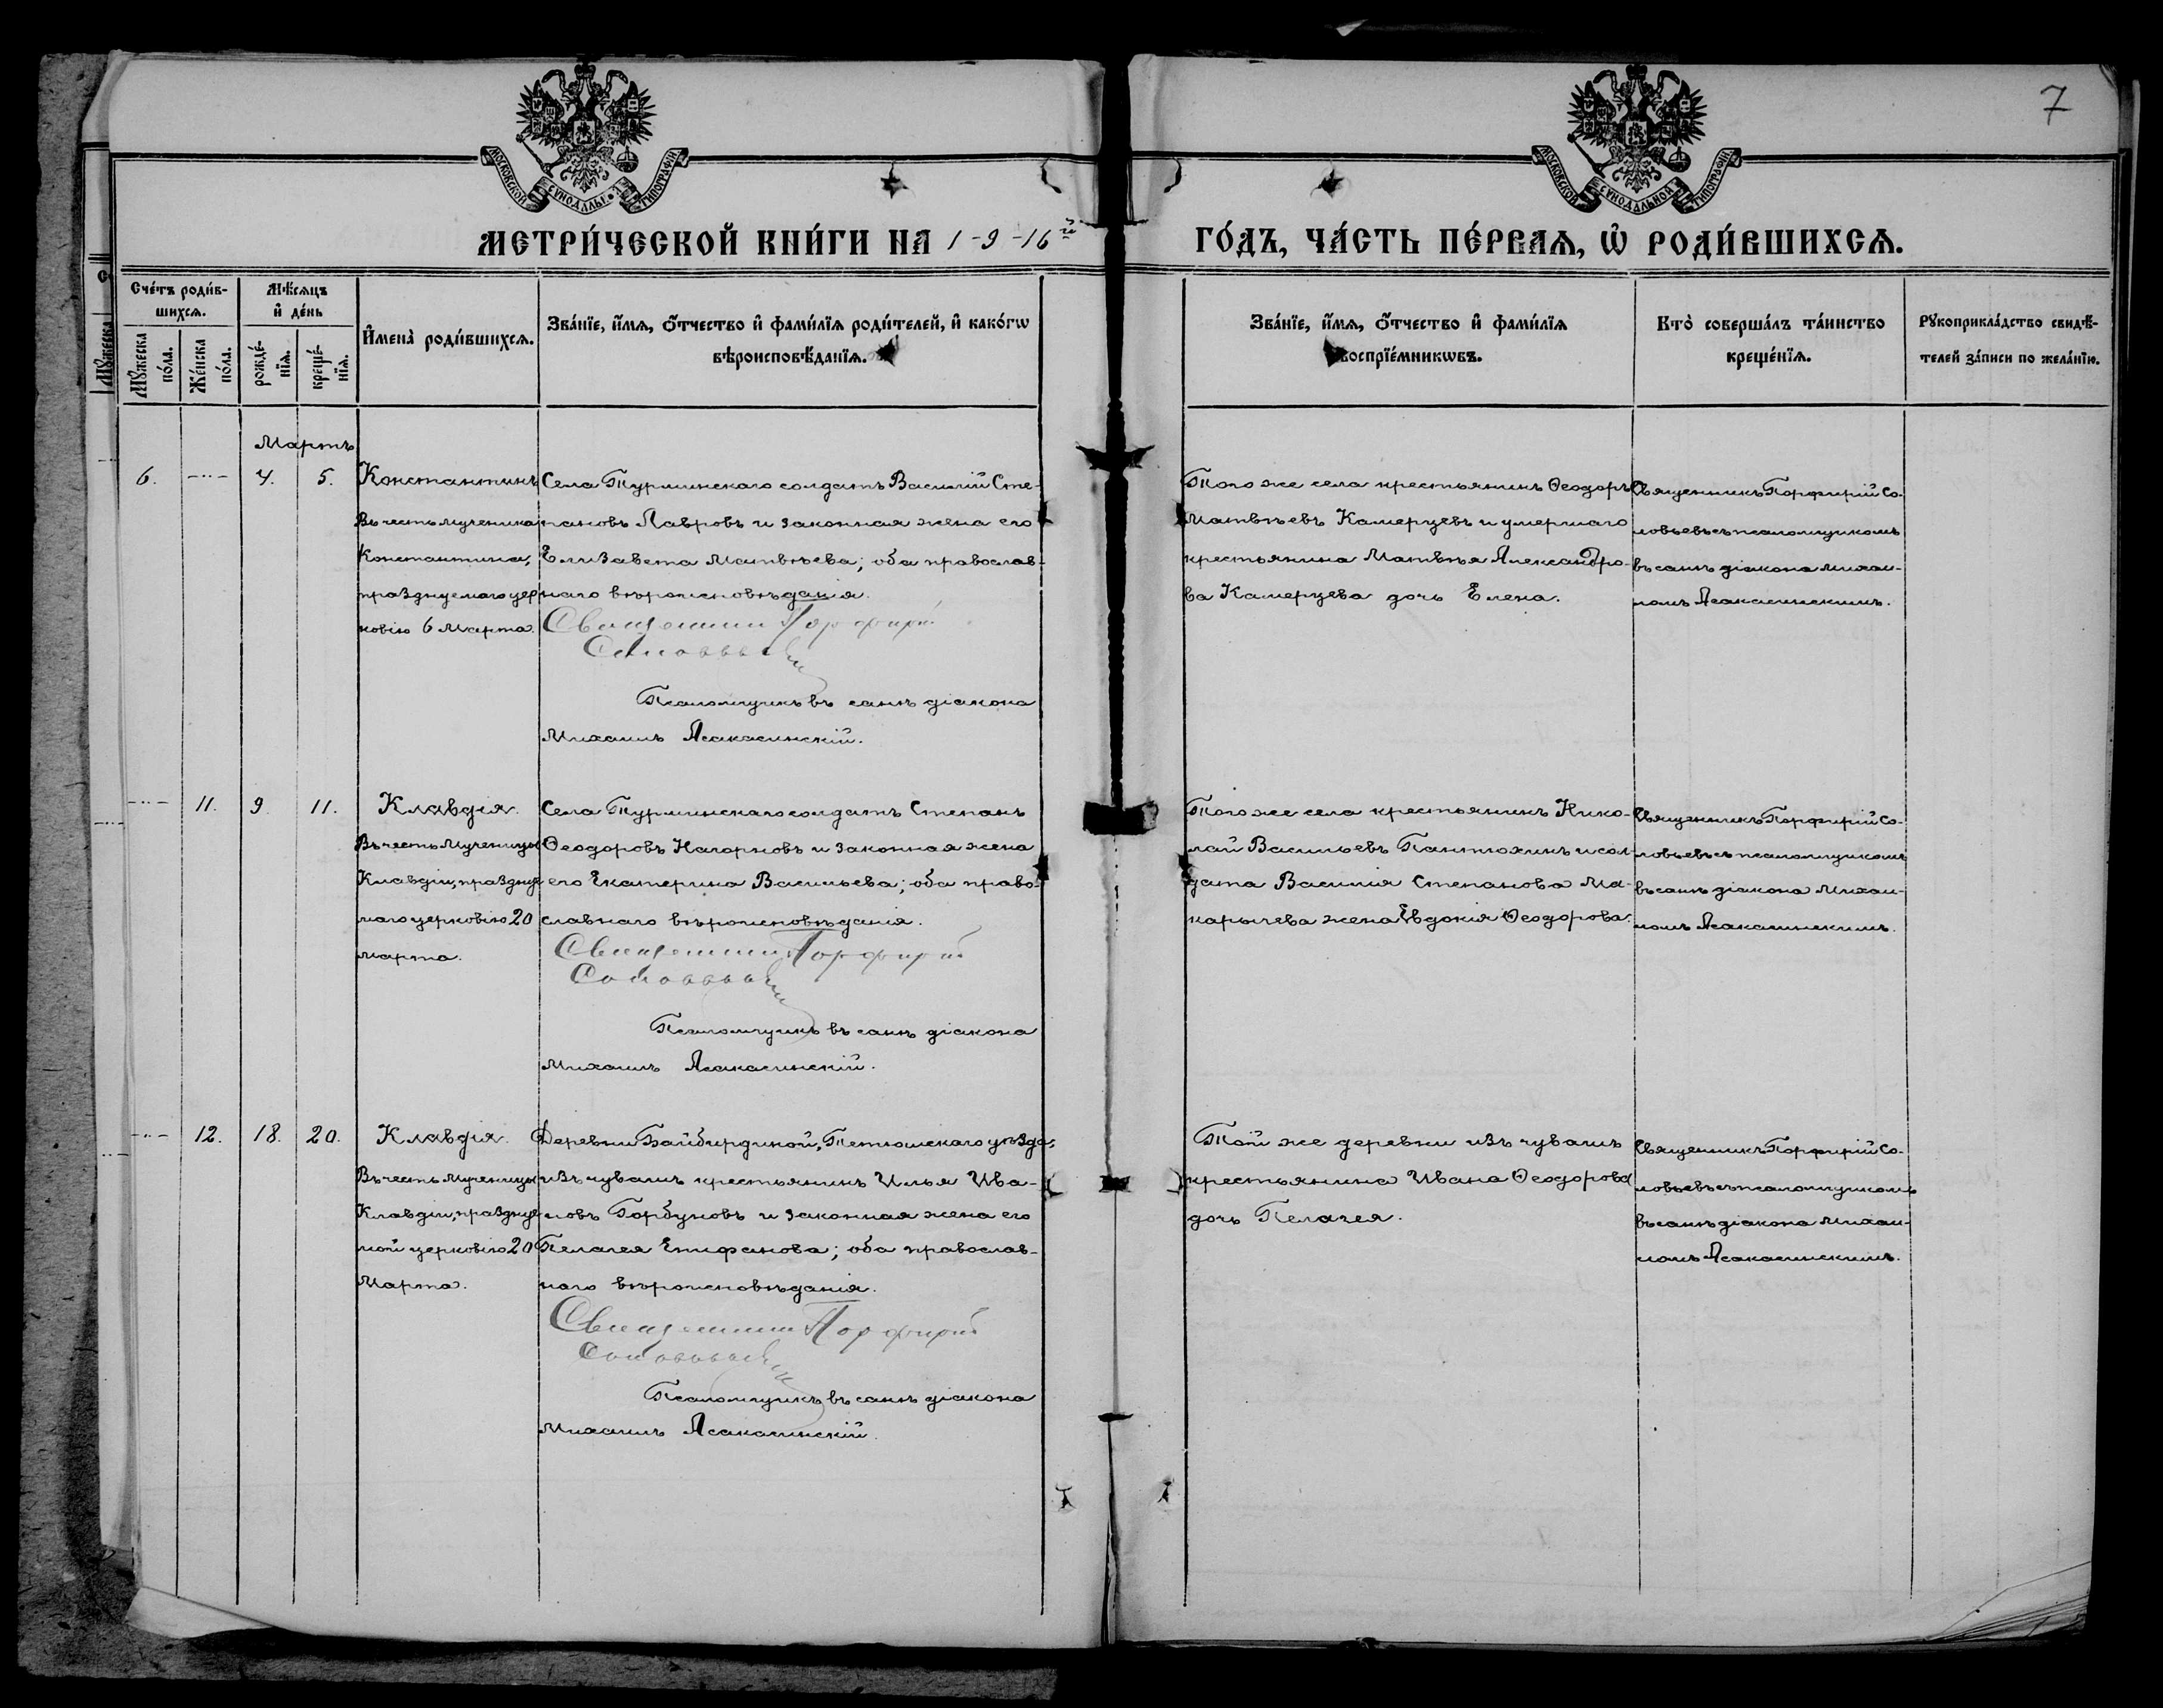 7
МОСКОВСКОЙ СѴНОДАЛЬНОЙ ТИПОГРАФІИ.
МОСКОВСКОЙ СѴНОДАЛЬНОЙ ТИПОГРАФІИ.
МЕТРИ́ЧЕСКОЙ КНИ́ГИ НА 1-9-16й ГО́ДЪ, ЧА́СТЬ ПЕ́РВАѦ, Ѡ҆ РОДИ́ВШИХСѦ.
Сче́тъ роди́в-
шихсѧ.
Мꙋ́жеска по́ла.
Же́нска по́ла.
Мѣ́сѧцъ
и҆ де́нь
рожде́-нїѧ.
креще́-нїѧ.
И҆мена̀ роди́вшихсѧ.
Зва́нїе, и҆́мѧ, ѻ҆́тчество и҆ фами́лїѧ роди́телей, и҆ како́гѡ
вѣроисповѣ́данїѧ.
Зва́нїе, и҆́мѧ, ѻ҆́тчество и҆ фами́лїѧ
воспрїе́мникѡвъ.
Кто̀ соверша́лъ та́инство
креще́нїѧ.
Рꙋкоприкла́дство свидѣ́-
телей за́писи по жела́нїю.
Мартъ
6. -··- 4. 5.
Константинъ
Въ честь мученика
Константина,
празднуемаго цер
ковію 6 Марта.
Села Турминскаго солдатъ Василій Сте-
пановъ Лавровъ и законная жена его
Елизавета Матвѣева; оба православ-
наго вѣроисповѣданія.
Священникъ Порфирій
Соловьевъ
Псаломщикъ въ санѣ діакона
Михаилъ Асакасинскій.
Того же села крестьянинъ Ѳеодоръ
Матвѣевъ Камерцевъ и умершаго
крестьянина Матвѣя Александро-
ва Камерцева дочь Елена.
Священникъ Порфирій Со-
ловьевъ съ псаломщикомъ
въ санѣ діакона Михаи-
ломъ Асакасинскимъ.
-··- 11. 9. 11.
Клавдія.
Въ честь мученицы
Клавдіи, праздnуе
маго церковію 20
марта.
Села Турминскаго солдатъ Степанъ
Ѳеодоровъ Нагорновъ и законная жена
его Екатерина Васильева; оба право-
славнаго вѣроисповѣданія.
Священникъ Порфирій
Соловьевъ
Псаломщикъ въ санѣ діакона
Михаилъ Асакасинскій.
Того же села крестьянинъ Нико-
лай Васильевъ Пантюхинъ и сол-
дата Василія Степанова Ма-
карычева жена Евдокія Ѳеодорова.
Священникъ Порфирій Со-
ловьевъ съ псаломщикомъ
въ санѣ діакона Михаи-
ломъ Асакасинскимъ.
-··- 12. 18. 20.
Клавдія.
Въ честь мученицы
Клавдіи, празднуе
мой церковію 20
Марта.
Деревни Байбирдиной, Тетюшскаго уѣзда,
изъ чувашъ крестьянинъ Илья Ива-
новъ Горбуновъ и законная жена его
Пелагея Епифанова; оба православ-
наго вѣроисповѣданія.
Священникъ Порфирій
Соловьевъ
Псаломщикъ въ санѣ діакона
Михаилъ Асакасинскій.
Той же деревни изъ чувашъ
крестьянина Ивана Ѳеодорова
дочь Пелагея.
Священникъ Порфирій Со-
ловьевъ съ псаломщикомъ
въ санѣ діакона Михаи-
ломъ Асакасинскимъ.